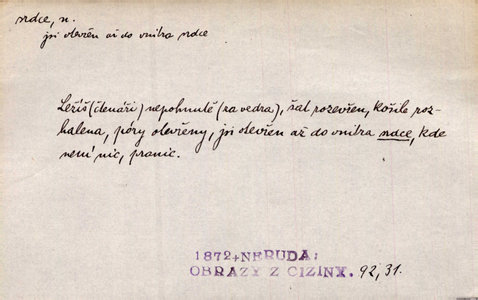 srdce, n.
jsi otevřen až do vnitra srdce
Ležíš (čtenáři) nepohnutě (za vedra), šat rozevřen, košile roz-
halena, póry otevřeny, jsi otevřen až do vnitra srdce, kde
není nic, pranic.
1872+NERUDA:
OBRAZY Z CIZINY. 92,31.